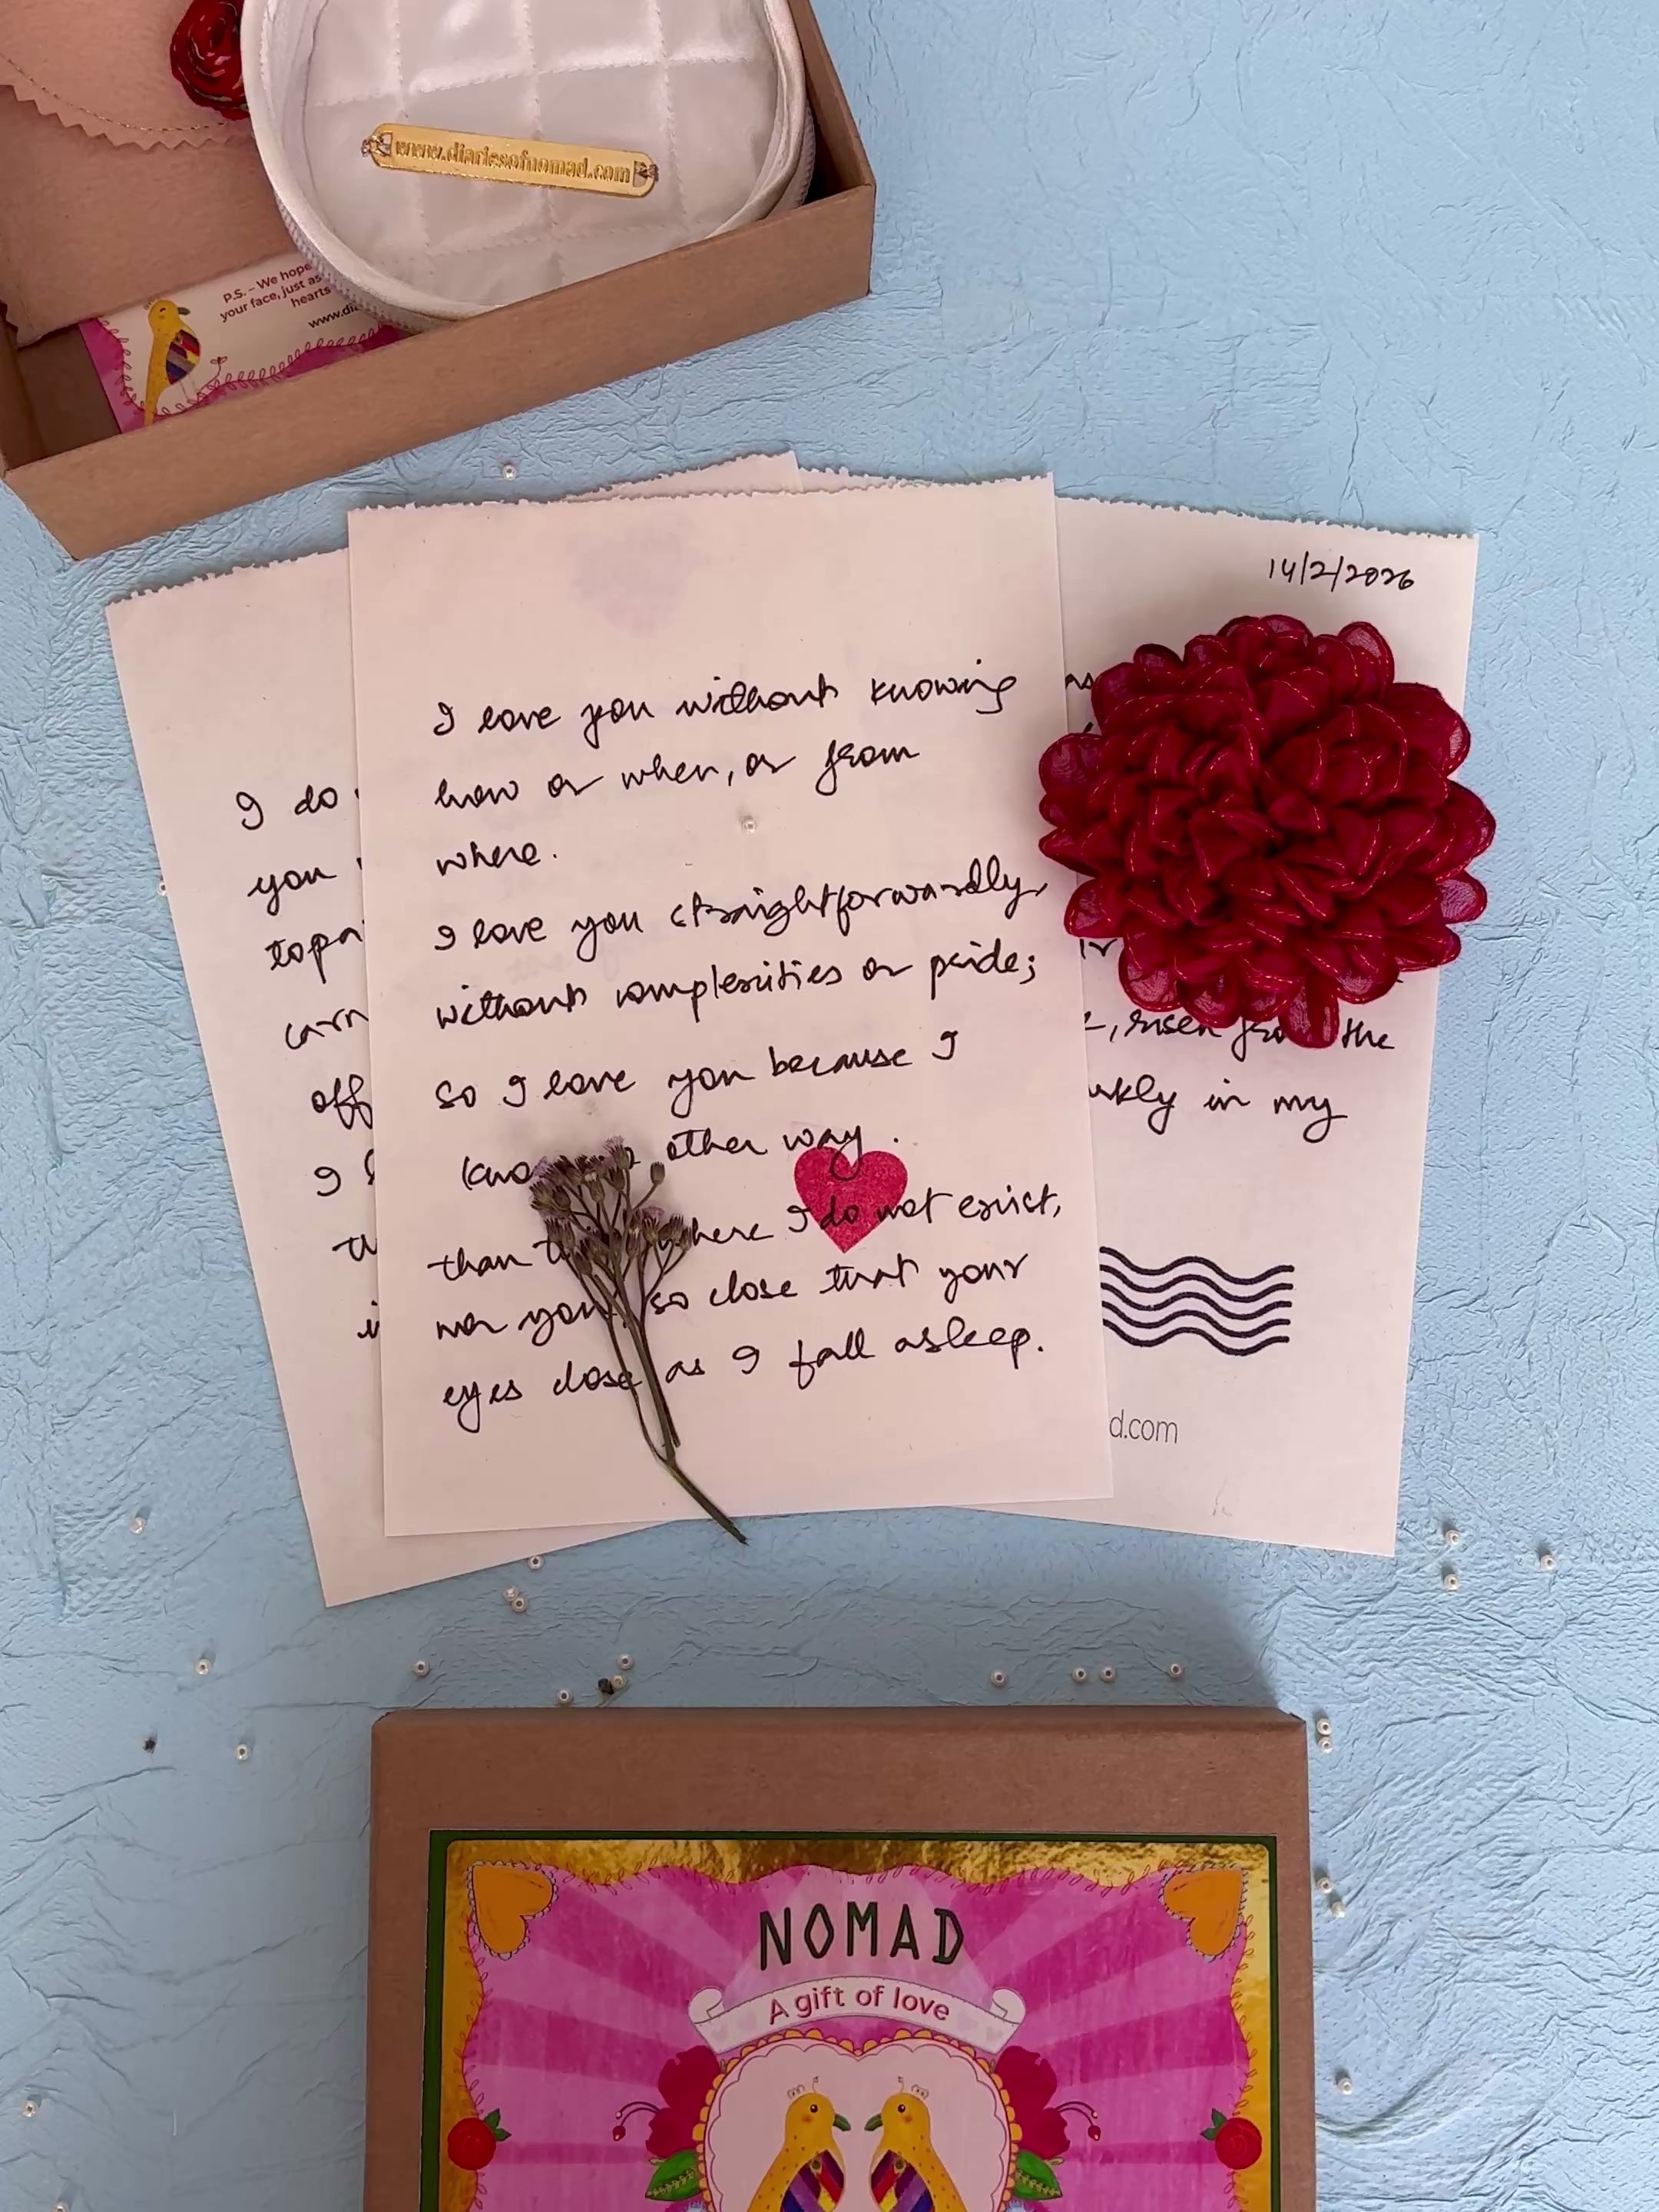 www.diariesofnomad.com
P.S. – We hope
your face, just as
hearts
www.dia
14/2/2026
I do
you
topa
carn
off
I
in
I love you without knowing
how or when, or from
where.
I love you straightforwardly,
without complexities or pride;
so I love you because I
know other way.
than where I do not exist,
nor you, so close that your
eyes close as I fall asleep.
as
, risen from the
in my
d.com
NOMAD
A gift of love